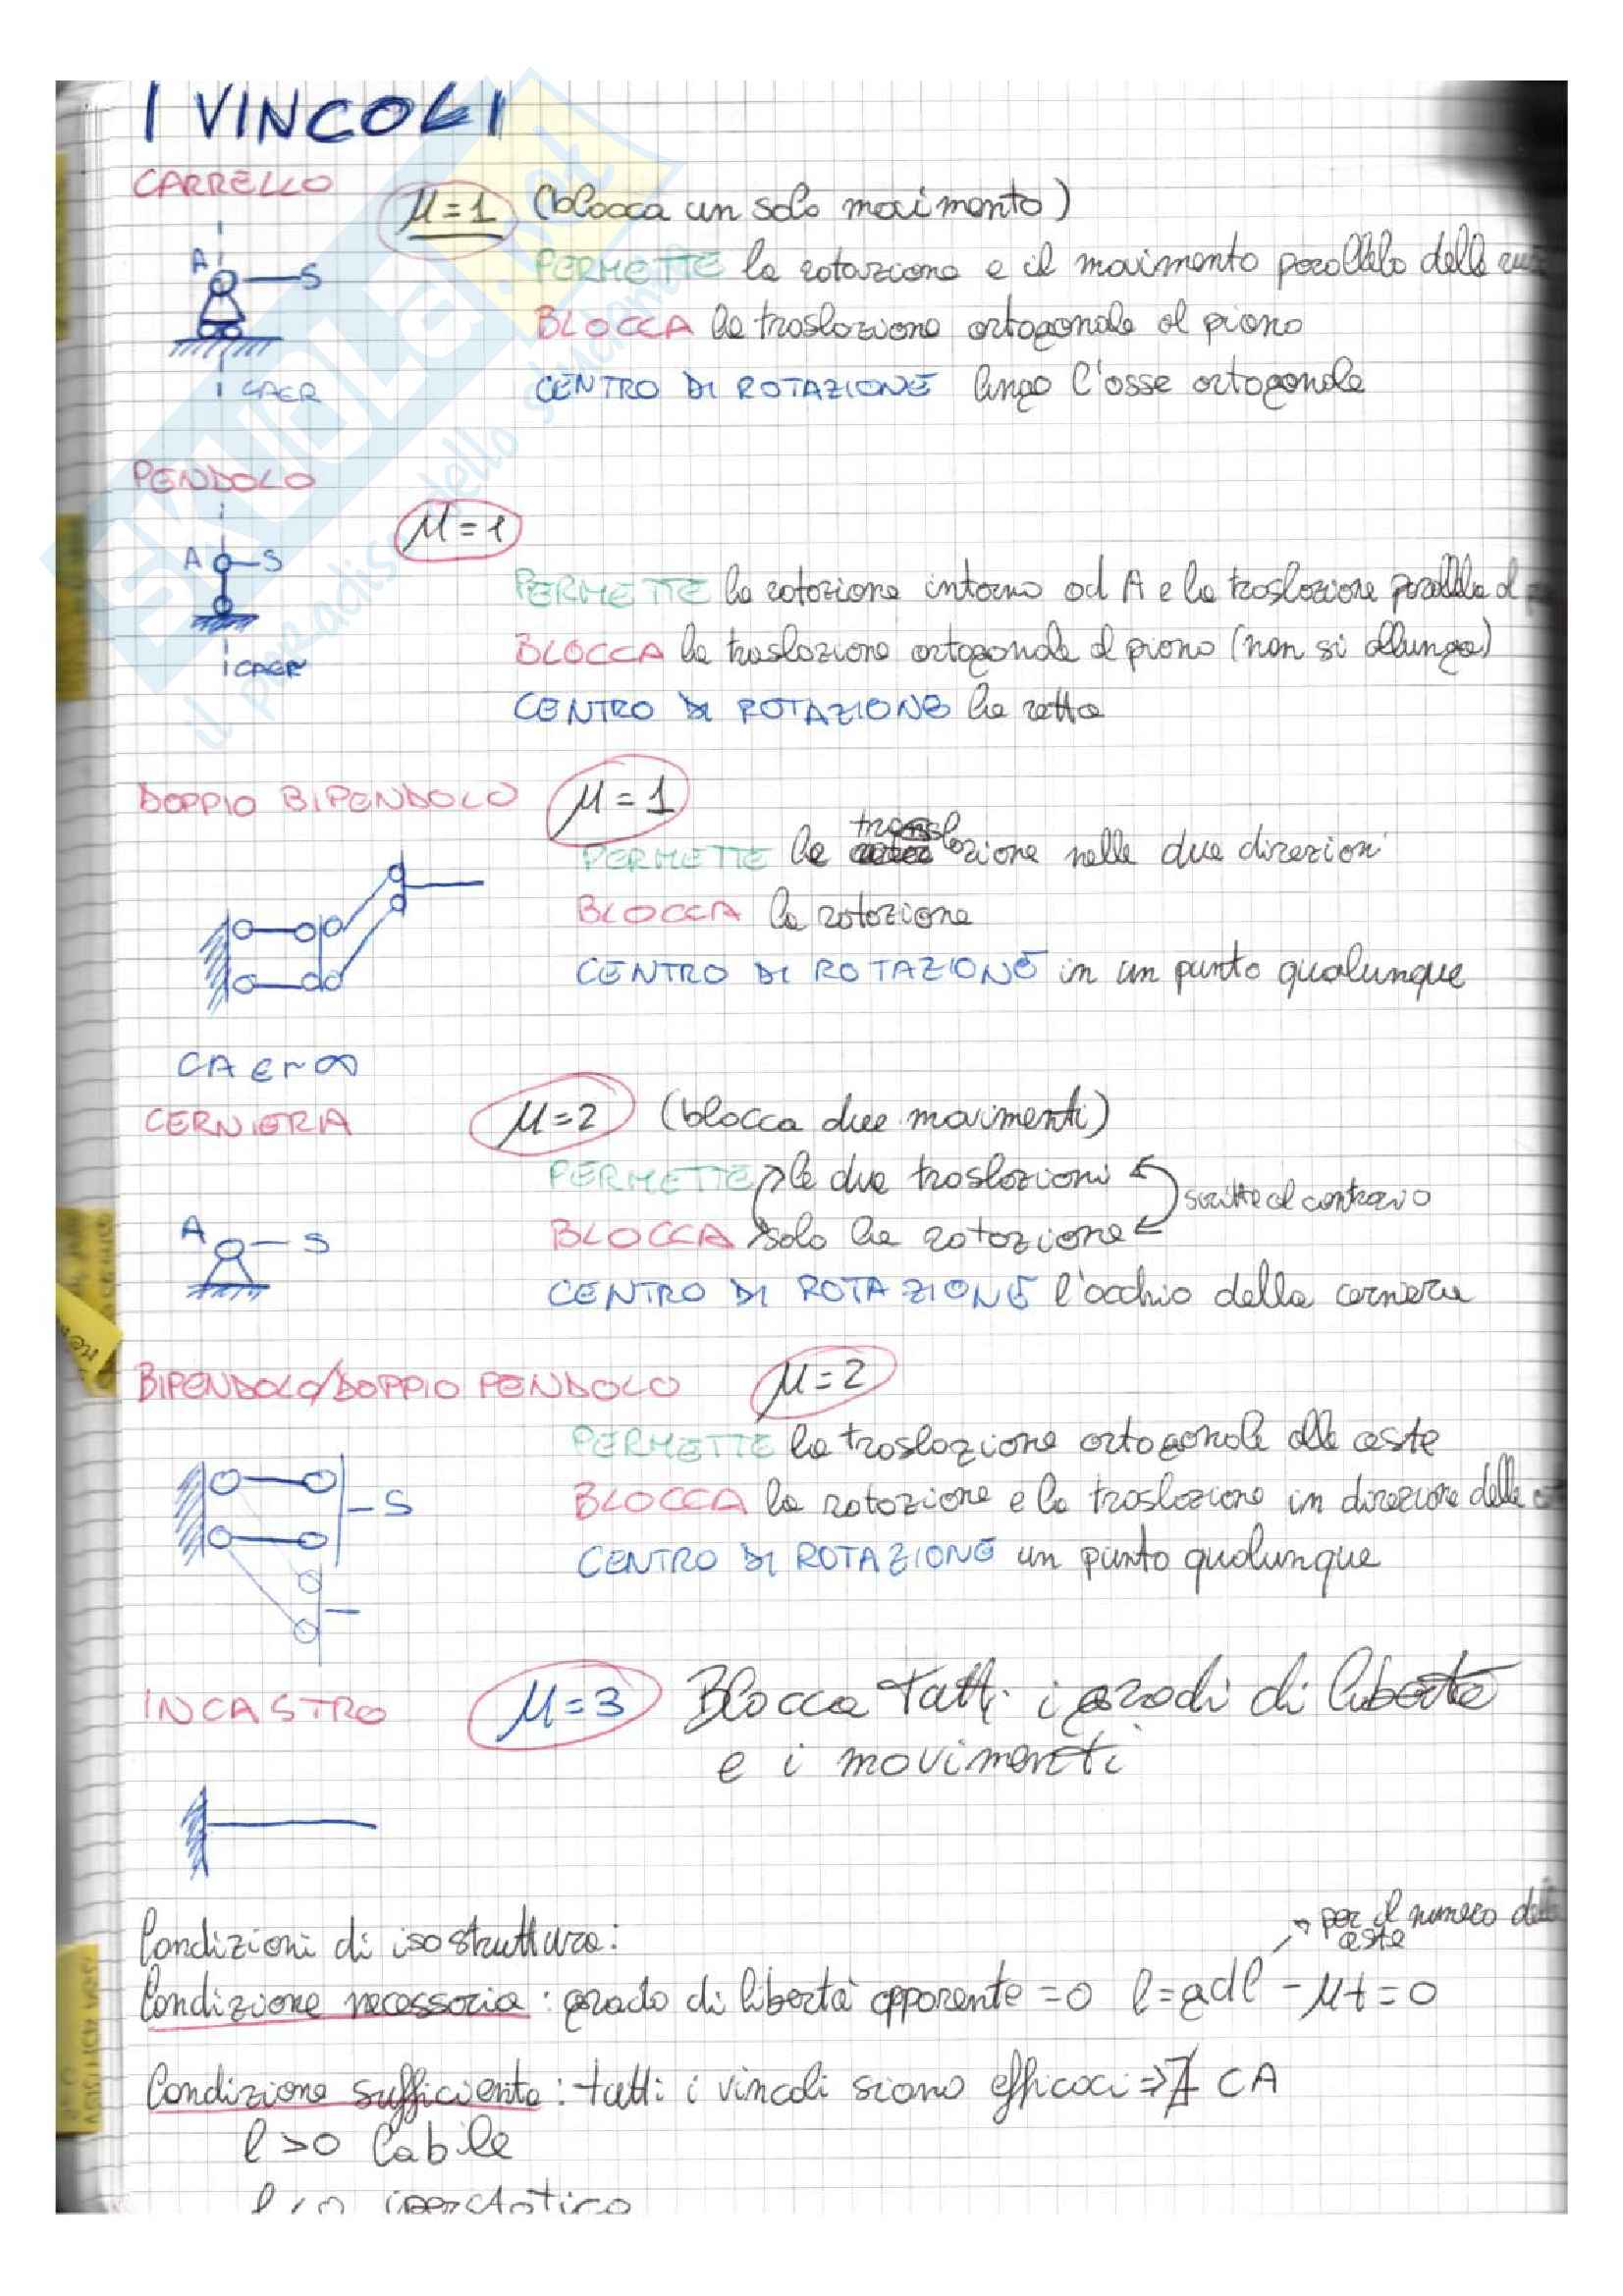 I VINCOLI
CARRELLO
μ=1 (blocca un solo movimento)
A S
PERMETTE la rotazione e il movimento parallelo delle
BLOCCA la traslazione ortogonale al piano
CENTRO DI ROTAZIONE lungo l'asse ortogonale
CAER
PENDOLO
μ=1
A S
PERMETTE la rotazione intorno ad A e la traslazione parallela al
BLOCCA la traslazione ortogonale al piano (non si allunga)
CAER
CENTRO DI ROTAZIONE la retta
DOPPIO BIPENDOLO μ=1
PERMETTE la traslazione nelle due direzioni
BLOCCA la rotazione
CENTRO DI ROTAZIONE in un punto qualunque
CA E r ∞
CERNIERIA μ=2 (blocca due movimenti)
PERMETTE le due traslazioni
scritte al contrario
A S
BLOCCA solo la rotazione
CENTRO DI ROTAZIONE l'occhio della cerniera
BIPENDOLO/DOPPIO PENDOLO μ=2
PERMETTE la traslazione ortogonale alle aste
S
BLOCCA la rotazione e la traslazione in direzione delle
CENTRO DI ROTAZIONE un punto qualunque
INCASTRO μ=3 Blocca tutti i gradi di libertà
e i movimenti
per il numero delle
aste
Condizioni di isostruttura:
Condizione necessaria: grado di libertà apparente =0 l=gdl -μt=0
Condizione sufficiente: tutti i vincoli siano efficaci ⇒∄ CA
l>0 labile
l<0 iperstatico
SKUOLA.net
il paradiso dello studente